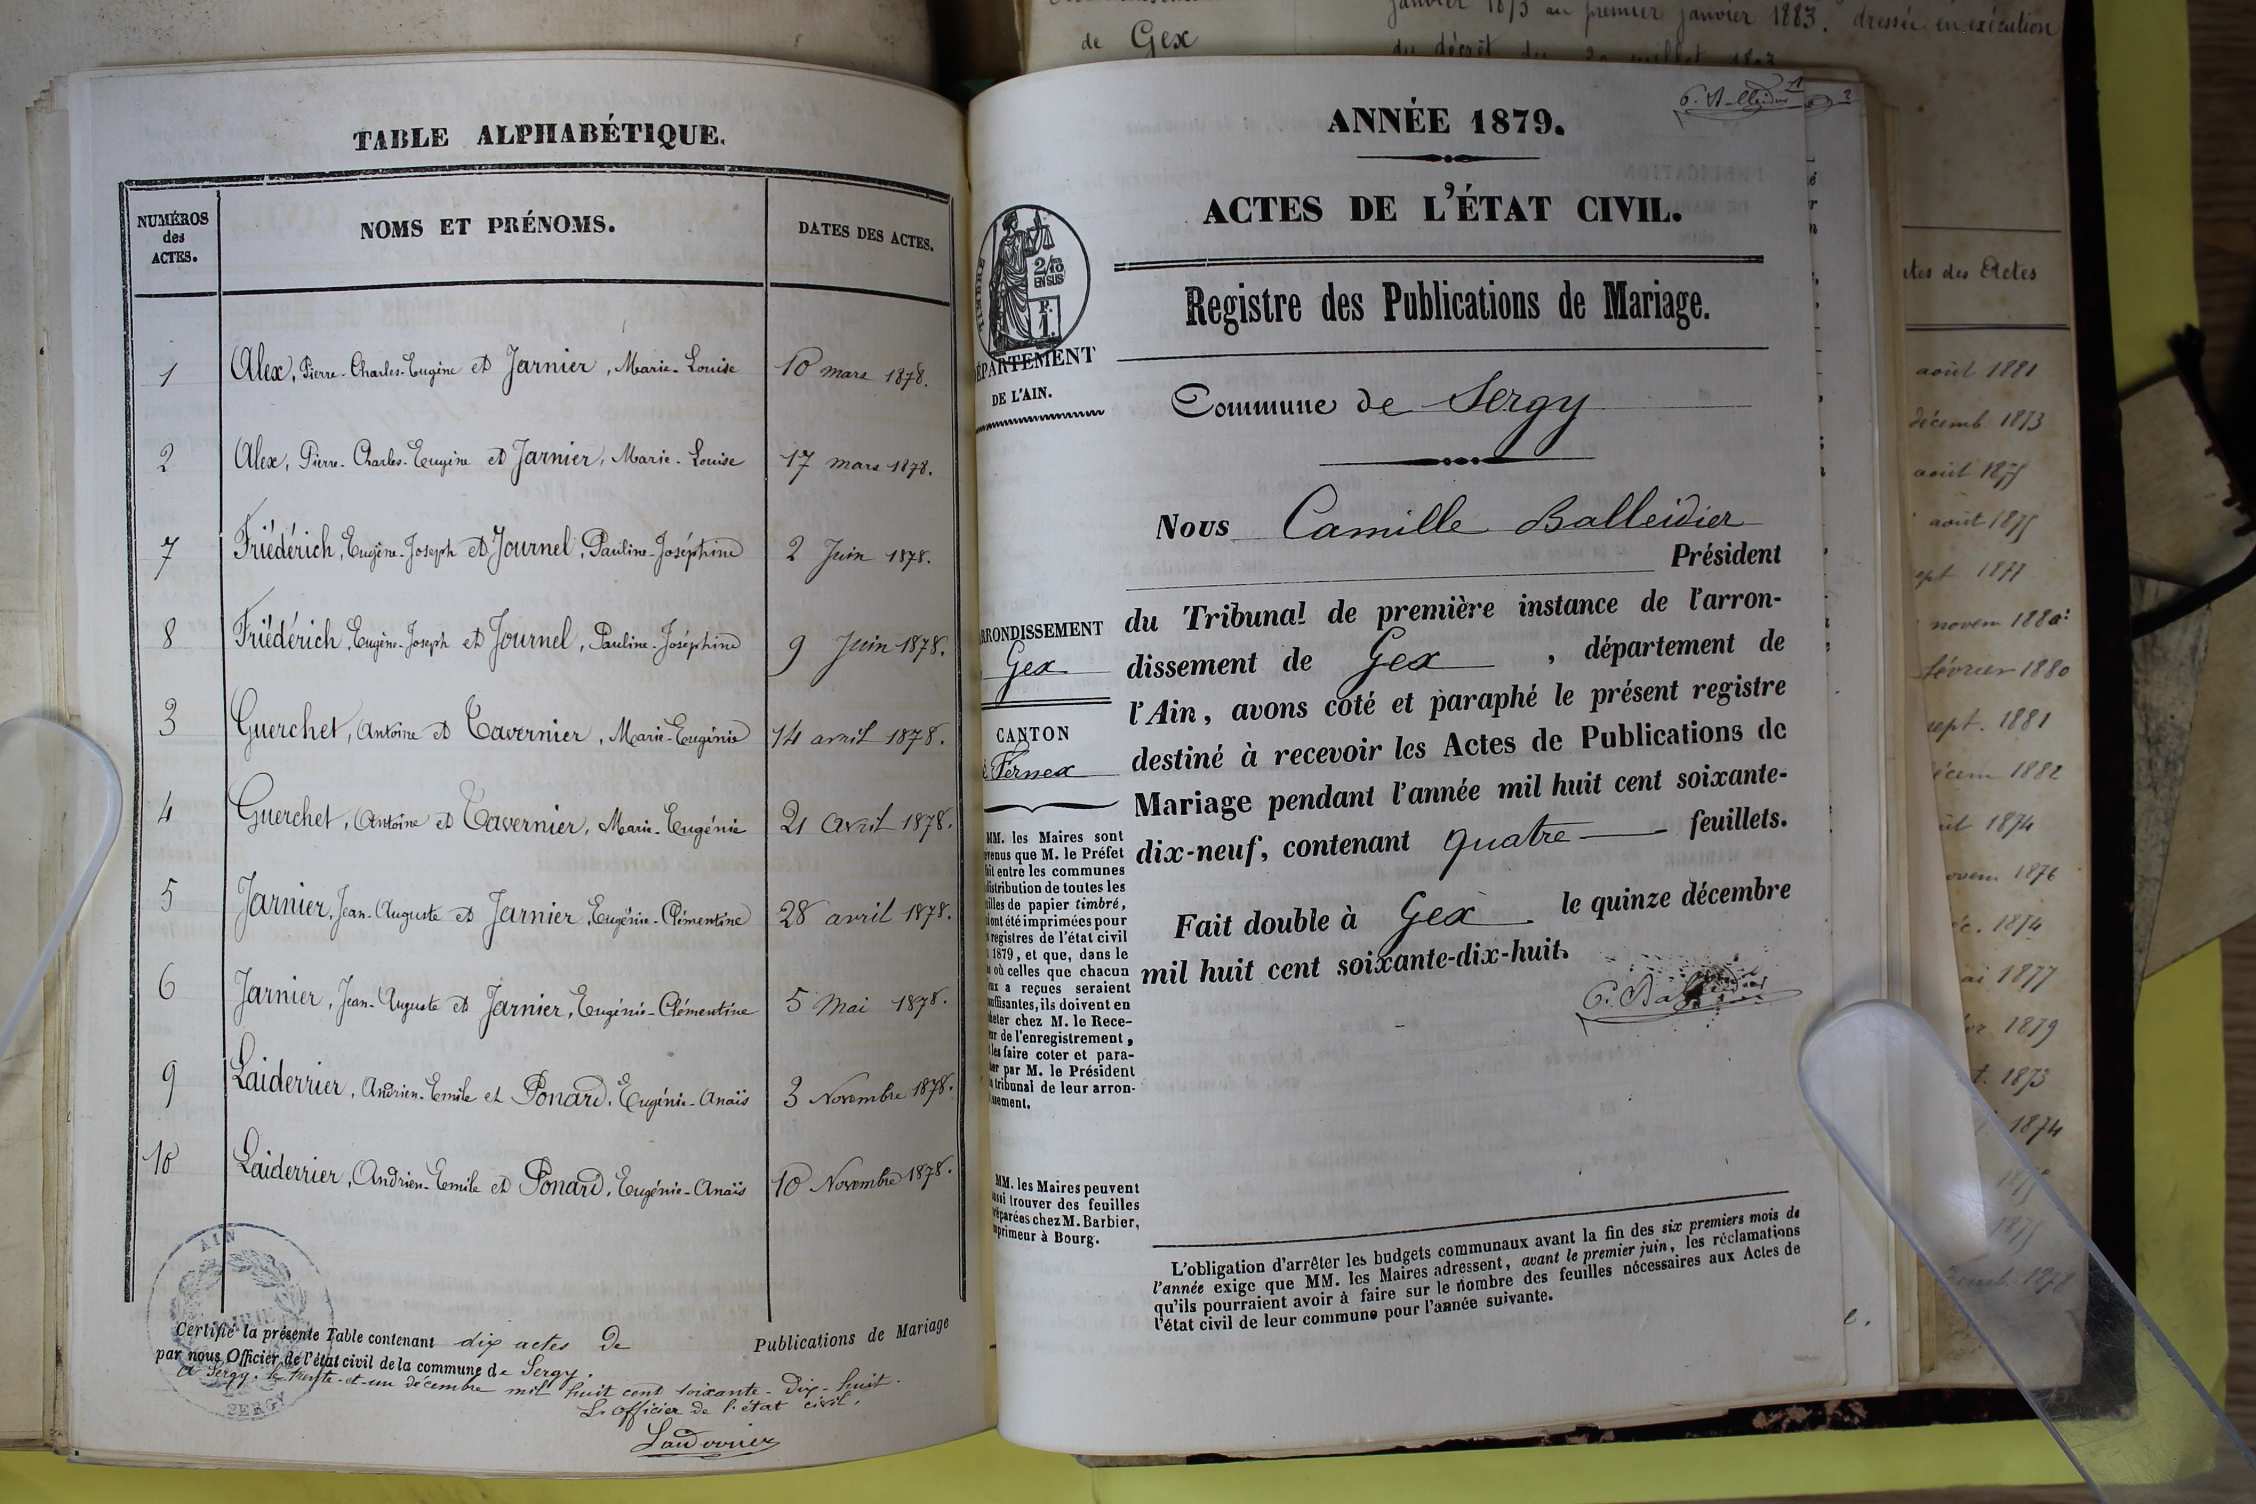 de Gex
janvier 1873 au premier janvier 1883. dressée en exécution
TABLE ALPHABÉTIQUE.
NUMÉROS
des
ACTES.
NOMS ET PRÉNOMS.
DATES DES ACTES.
1 Alex, Pierre-Charles-Eugène et Jarnier, Marie-Louise 10 mars 1878.
2 Alex, Pierre-Charles-Eugène et Jarnier, Marie-Louise 17 mars 1878.
7 Friédérich, Eugène-Joseph et Journel, Pauline-Joséphine 2 Juin 1878.
8 Friédérich, Eugène-Joseph et Journel, Pauline-Joséphine 9 Juin 1878.
3 Guerchet, Antoine et Tavernier, Marie-Eugénie 14 avril 1878.
4 Guerchet, Antoine et Tavernier, Marie-Eugénie 21 avril 1878.
5 Jarnier, Jean-Auguste et Jarnier, Eugénie-Clémentine 28 avril 1878.
6 Jarnier, Jean-Auguste et Jarnier, Eugénie-Clémentine 5 Mai 1878.
9 Laiderrier, Andrien-Emile et Ponard, Eugénie-Anaïs 3 Novembre 1878.
10 Laiderrier, Andrien-Emile et Ponard, Eugénie-Anaïs 10 Novembre 1878.
AIN
Certifié la présente Table contenant dix actes de Publications de Mariage
par nous Officier de l'état civil de la commune de Sergy.
A Sergy, le trente-et-un décembre mil huit cent soixante-dix-huit.
L'officier de l'état civil,
ANNÉE 1879.
ACTES DE L'ÉTAT CIVIL.
Registre des Publications de Mariage.
TIMBRE
2/10
EN SUS
F.
1.
DÉPARTEMENT
DE L'AIN.
Commune de Sergy
Nous Camille Balleidier
Président
du Tribunal de première instance de l'arron-
dissement de Gex, département de
l'Ain, avons coté et paraphé le présent registre
destiné à recevoir les Actes de Publications de
Mariage pendant l'année mil huit cent soixante-
dix-neuf, contenant quatre feuillets.
Fait double à Gex le quinze décembre
mil huit cent soixante-dix-huit.
RRONDISSEMENT
Gex
CANTON
Fernex
MM. les Maires sont
venus que M. le Préfet
ait entre les communes
distribution de toutes les
illes de papier timbré,
ont été imprimées pour
s registres de l'état civil
1879, et que, dans le
s où celles que chacun
ux a reçues seraient
suffisantes, ils doivent en
heter chez M. le Rece-
eur de l'enregistrement,
les faire coter et para-
her par M. le Président
u tribunal de leur arron-
sement.
MM. les Maires peuvent
ussi trouver des feuilles
réparées chez M. Barbier,
mprimeur à Bourg.
L'obligation d'arrêter les budgets communaux avant la fin des six premiers mois de
l'année exige que MM. les Maires adressent, avant le premier juin, les réclamations
qu'ils pourraient avoir à faire sur le nombre des feuilles nécessaires aux Actes de
l'état civil de leur commune pour l'année suivante.
des Actes
août 1881
décemb. 1873
août 1875
août 1875
sept 1877
novem 1880
février 1880
sept. 1881
1882
1874
1876
1874
1877
1879
1873
1874